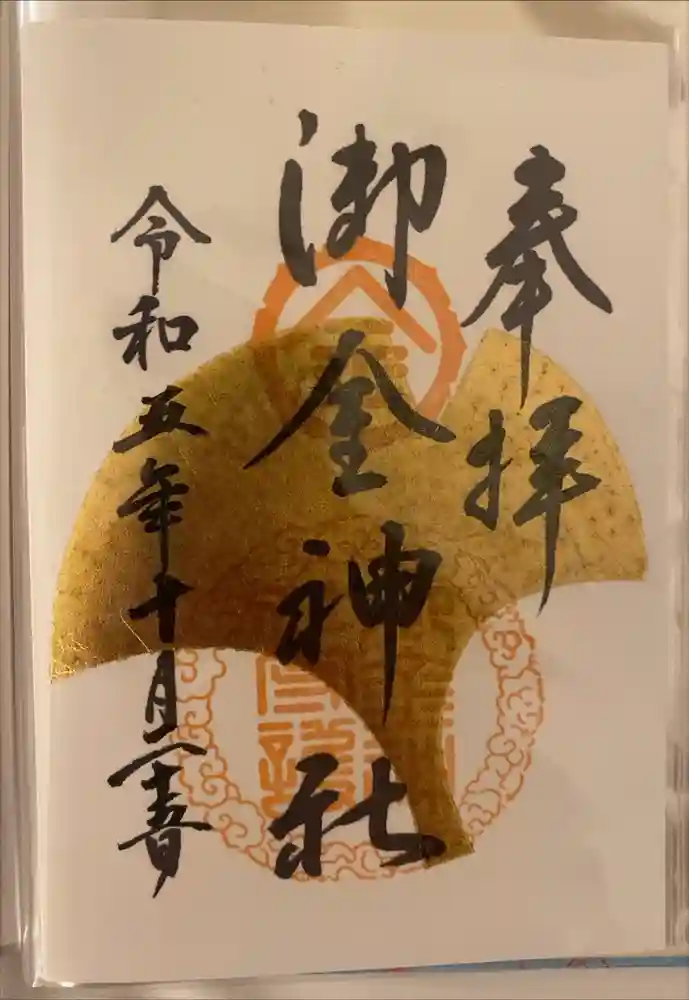 奉拝
御金神社
令和五年十月二十五日